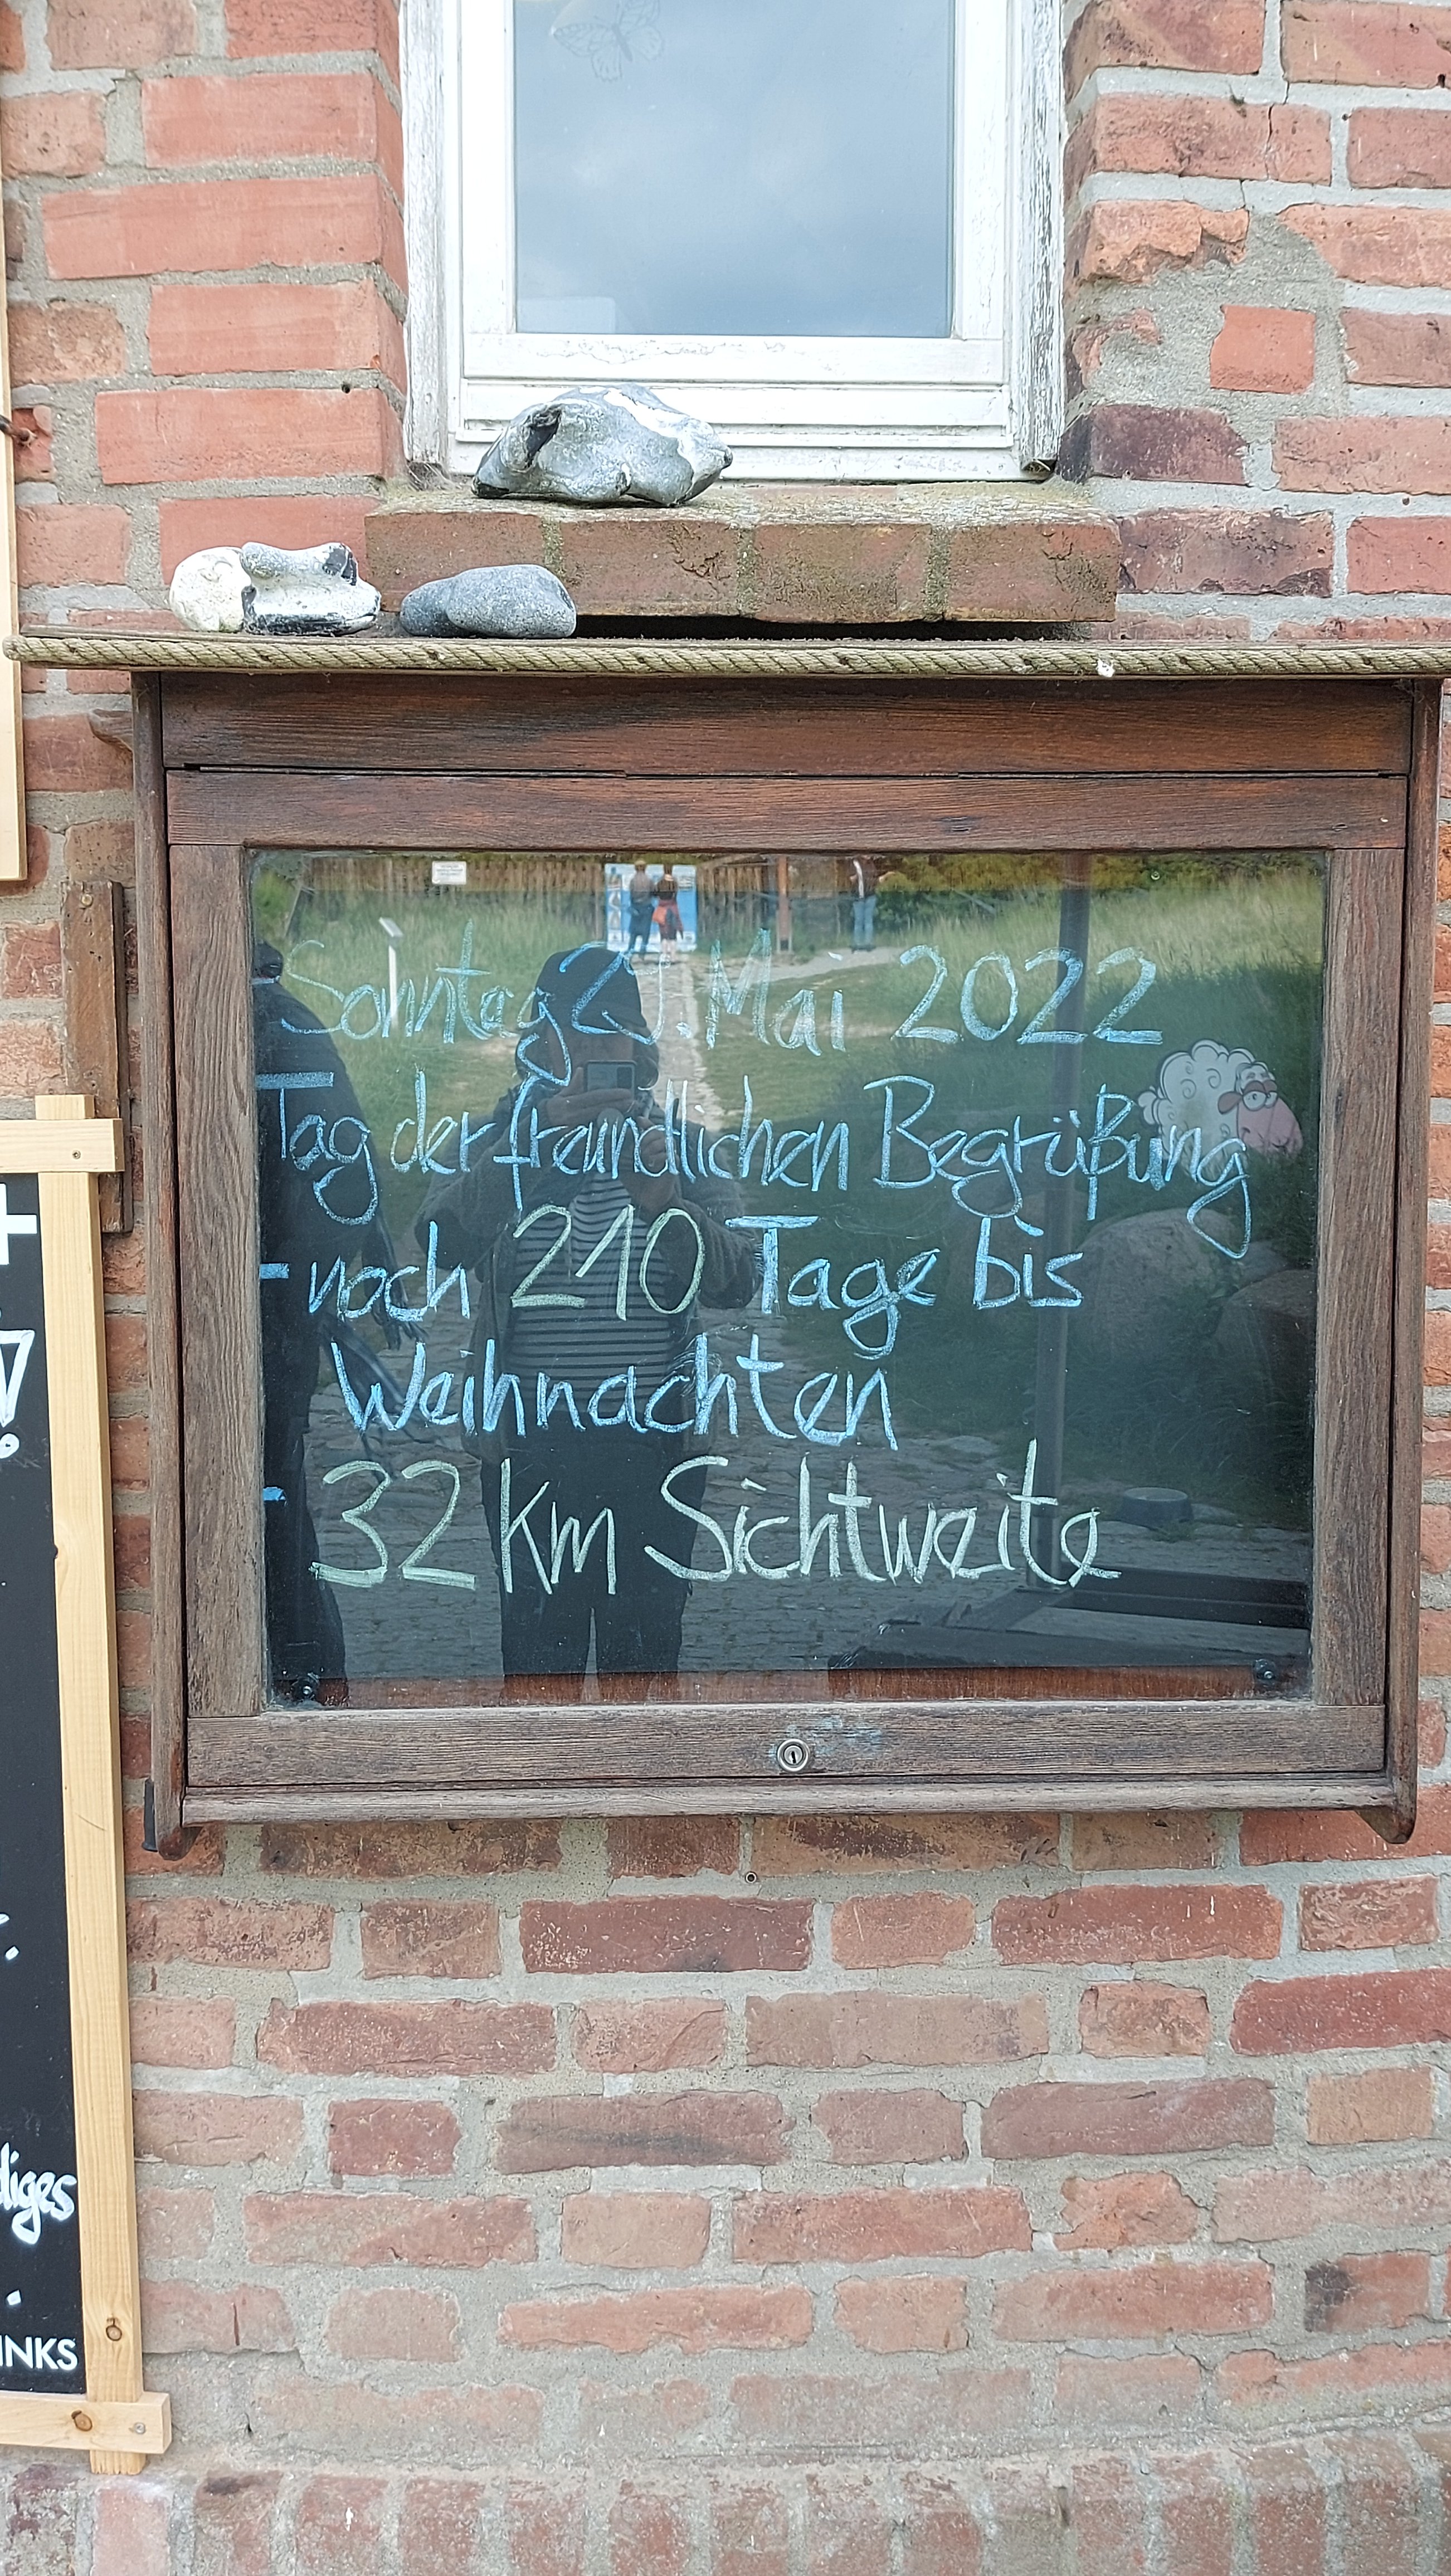 Sonntag 29. Mai 2022
Tag der freundlichen Begrüßung
- noch 210 Tage bis
Weihnachten
- 32 km Sichtweite
diges
INKS